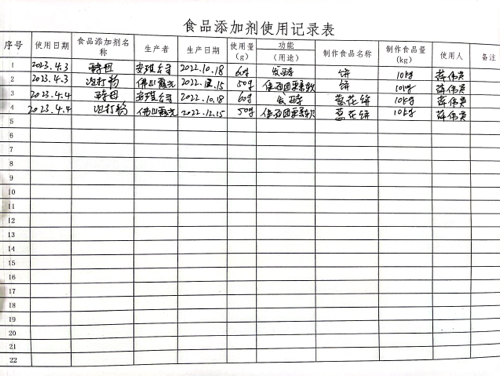 食品添加剂使用记录表
序号 使用日期 食品添加剂名称 生产者 生产日期 使用量(g) 功能(用途) 制作食品名称 制作食品量(kg) 使用人 备注
1 2023.4.3 酵母 安琪公司 2022.10.18 60g 发酵 饼 10kg
2 2023.4.3 泡打粉 2022.12.15 50g 使面团更柔软 饼 10kg
3 2023.4.4 酵母 安琪公司 2022.10.18 60g 发酵 葱花饼 10kg
4 2023.4.4 泡打粉 2022.12.15 50g 使面团更柔软 葱花饼 10kg
5
6
7
8
9
10
11
12
13
14
15
16
17
18
19
20
21
22